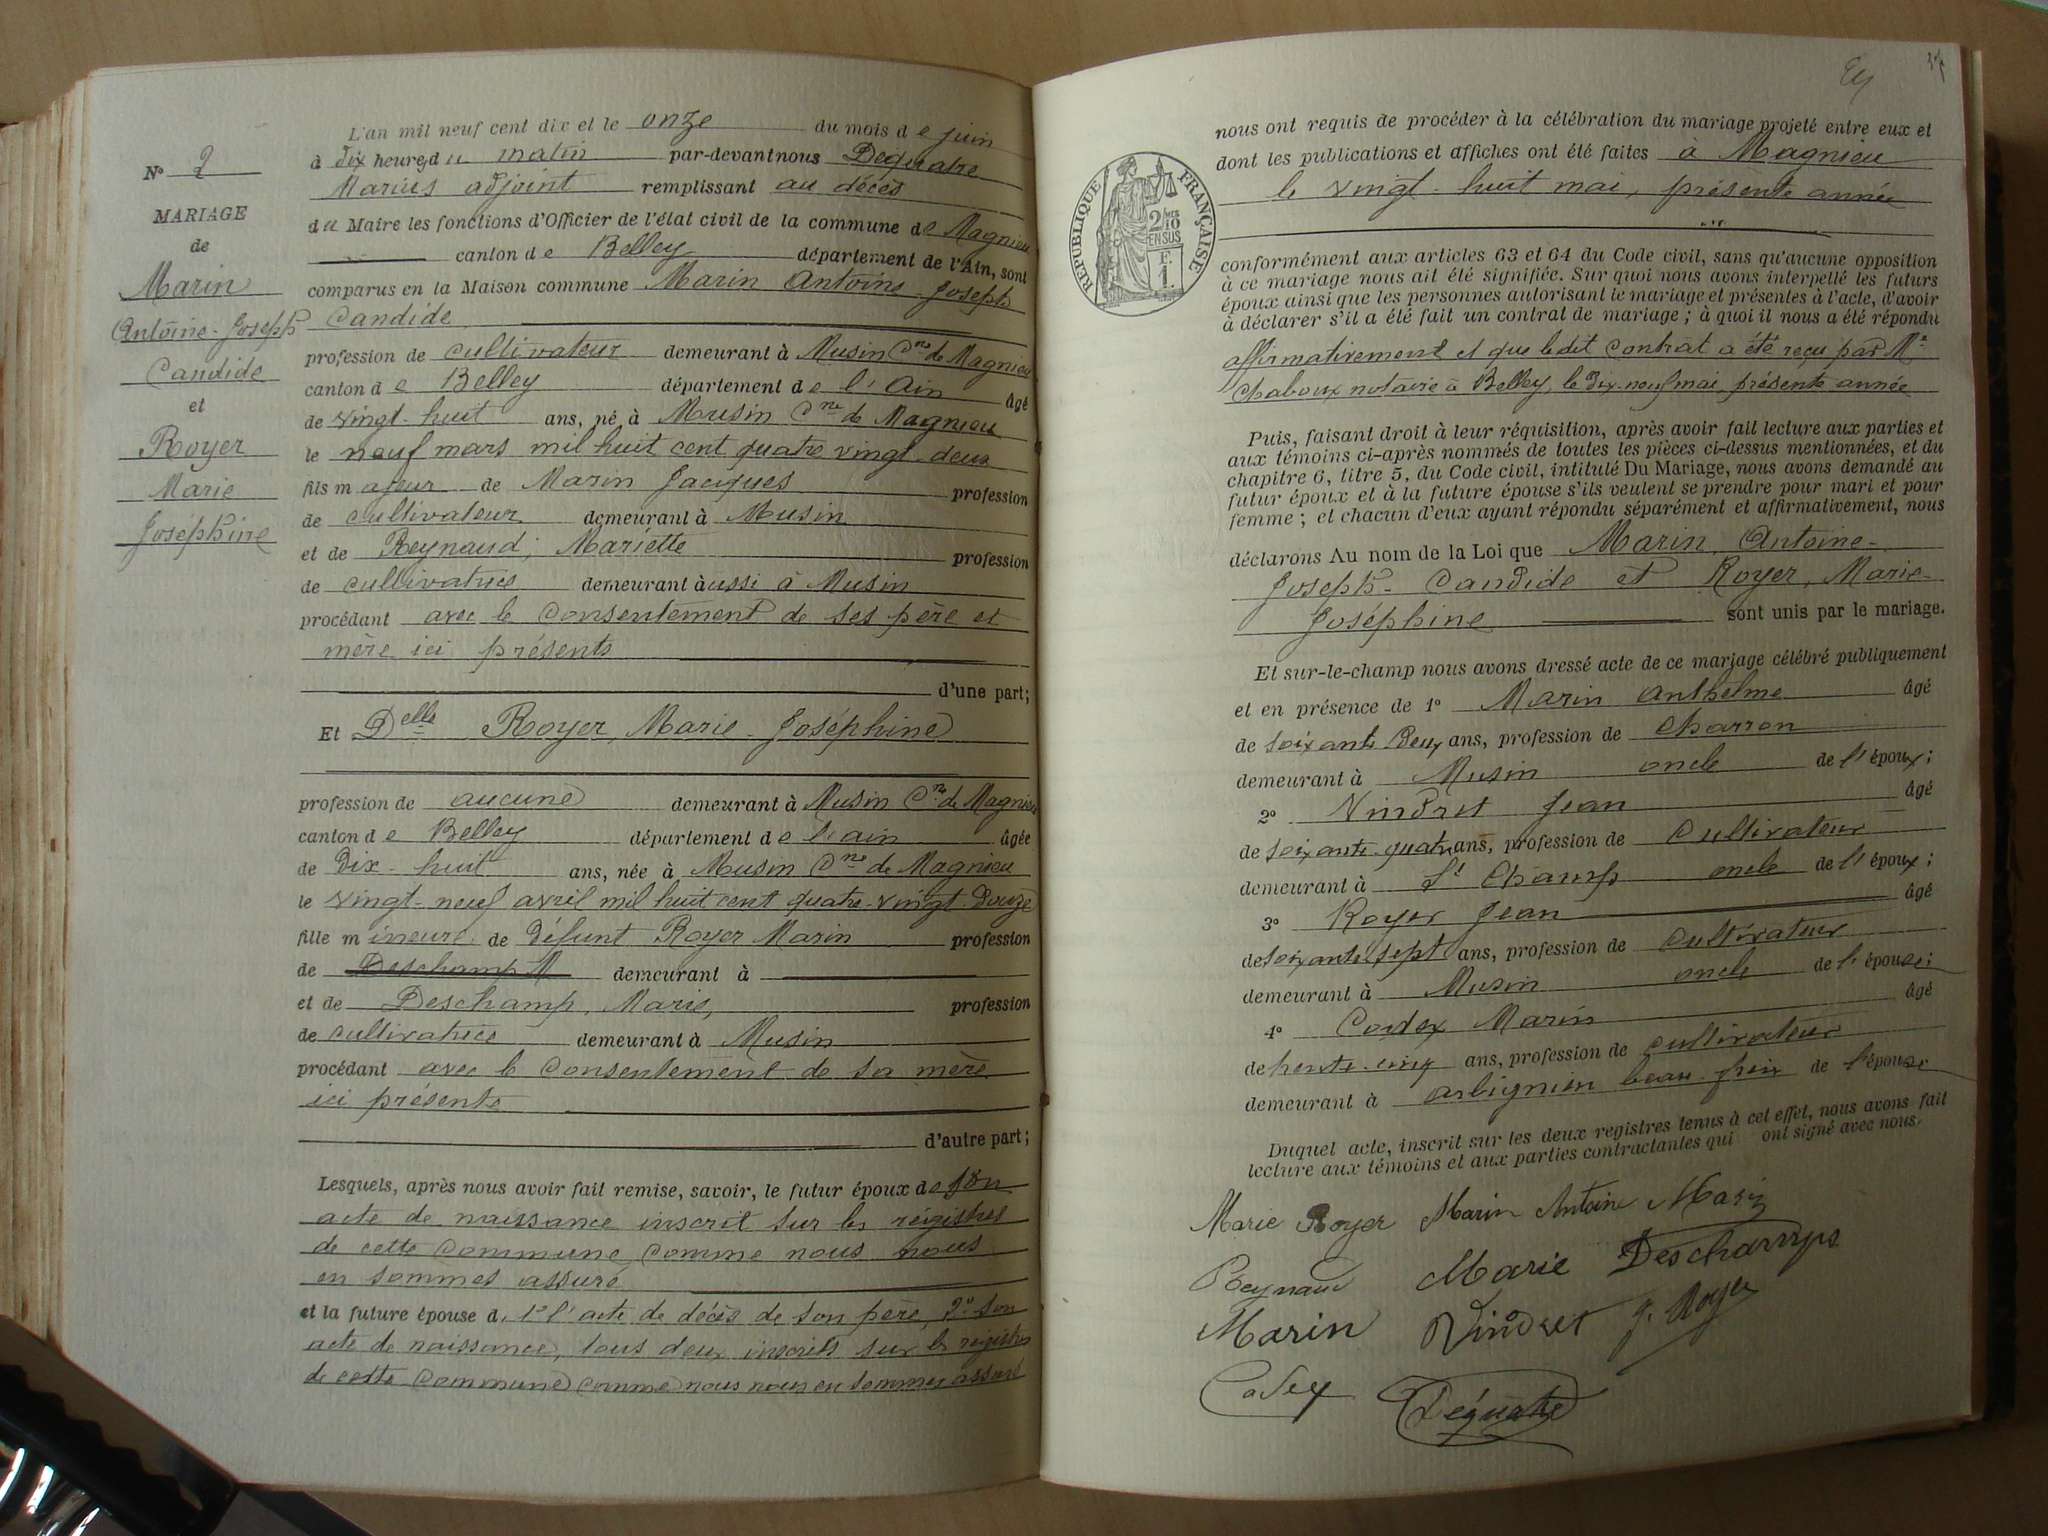 N° 2
MARIAGE
de
Marin
Antoine-Joseph
Candide
et
Royer
Marie
Joséphine
L'an mil neuf cent dix et le onze du mois de juin
à dix heures du matin par-devant nous Dequatre
Marius adjoint remplissant au décès
du Maire les fonctions d'Officier de l'état civil de la commune de Magnieu
canton de Belley département de l'Ain, sont
comparus en la Maison commune Marin Antoine-Joseph
Candide
profession de cultivateur demeurant à Musin Cne de Magnieu
canton de Belley département de l'Ain âgé
de vingt-huit ans, né à Musin Cne de Magnieu
le neuf mars mil huit cent quatre vingt-deux
fils majeur de Marin Jacques profession
de cultivateur demeurant à Musin
et de Reynaud, Mariette profession
de cultivatrice demeurant à aussi à Musin
procédant avec le consentement de ses père et
mère ici présents
d'une part;
Et Delle Royer, Marie-Joséphine
profession de aucune demeurant à Musin Cne de Magnieu
canton de Belley département de l'ain âgée
de dix-huit ans, née à Musin Cne de Magnieu
le vingt-neuf avril mil huit cent quatre-vingt-douze
fille mineure de défunt Royer Marin profession
de Deschamp M demeurant à
et de Deschamp, Marie, profession
de cultivatrice demeurant à Musin
procédant avec le consentement de sa mère
ici présente
d'autre part;
Lesquels, après nous avoir fait remise, savoir, le futur époux de son
acte de naissance inscrit sur les régistres
de cette commune, comme nous nous
en sommes assuré
et la future épouse d. 1° l'acte de décès de son père, 2° son
acte de naissance, tous deux inscrits sur les registres
de cette commune comme nous nous en sommes assuré
27
nous ont requis de procéder à la célébration du mariage projeté entre eux et
dont les publications et affiches ont été faites à Magnieu
le vingt-huit mai, présente année
RÉPUBLIQUE FRANÇAISE
2/10 EN SUS
F. 1.
conformément aux articles 63 et 64 du Code civil, sans qu'aucune opposition
à ce mariage nous ait été signifiée. Sur quoi nous avons interpellé les futurs
époux ainsi que les personnes autorisant le mariage et présentes à l'acte, d'avoir
à déclarer s'il a été fait un contrat de mariage; à quoi il nous a été répondu
affirmativement et que le dit contrat a été reçu par Me
Chaboux notaire à Belley, le dix-neuf mai, présente année
Puis, faisant droit à leur réquisition, après avoir fait lecture aux parties et
aux témoins ci-après nommés de toutes les pièces ci-dessus mentionnées, et du
chapitre 6, titre 5, du Code civil, intitulé Du Mariage, nous avons demandé au
futur époux et à la future épouse s'ils veulent se prendre pour mari et pour
femme; et chacun d'eux ayant répondu séparément et affirmativement, nous
déclarons Au nom de la Loi que Marin, Antoine-
Joseph-Candide et Royer, Marie-
Joséphine sont unis par le mariage.
Et sur-le-champ nous avons dressé acte de ce mariage célébré publiquement
et en présence de 1° Marin Anthelme âgé
de soixante deux ans, profession de charron
demeurant à Musin oncle de l'époux;
2° Vindret Jean âgé
de soixante-quatre ans, profession de cultivateur
demeurant à St Champ oncle de l'époux;
3° Royer Jean âgé
de soixante sept ans, profession de cultivateur
demeurant à Musin oncle de l'épouse;
4° Codex Marin âgé
de trente-cinq ans, profession de cultivateur
demeurant à Arbignieu beau-frère de l'épouse
Duquel acte, inscrit sur les deux registres tenus à cet effet, nous avons fait
lecture aux témoins et aux parties contractantes qui ont signé avec nous.
Marie Royer Marin Antoine Marin
Reynaud Marie Deschamps
Marin Vindret J. Royer
Codex Déquatre